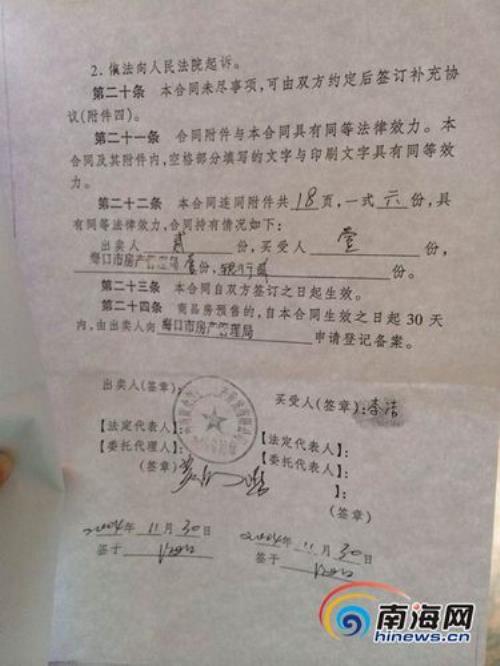 2. 依法向人民法院起诉。
第二十条 本合同未尽事项,可由双方约定后签订补充协
议(附件四)。
第二十一条 合同附件与本合同具有同等法律效力。本
合同及其附件内,空格部分填写的文字与印刷文字具有同等效
力。
第二十二条 本合同连同附件共 18 页,一式 六 份,具
有同等法律效力,合同持有情况如下:
出卖人 贰 份,买受人 壹 份,
海口市房产管理局 壹份, 银行贰 份。
第二十三条 本合同自双方签订之日起生效。
第二十四条 商品房预售的,自本合同生效之日起 30 天
内,由出卖人向 海口市房产管理局 申请登记备案。
出卖人(签章):
买受人(签章):李洁
【法定代表人】:
【法定代表人】:
【委托代理人】:
【委托代表人】:
(签章)
】:
(签章)
2004年 11月 30日
2004年 11月 30日
签于 海口
签于 海口
南海网
hinews.cn